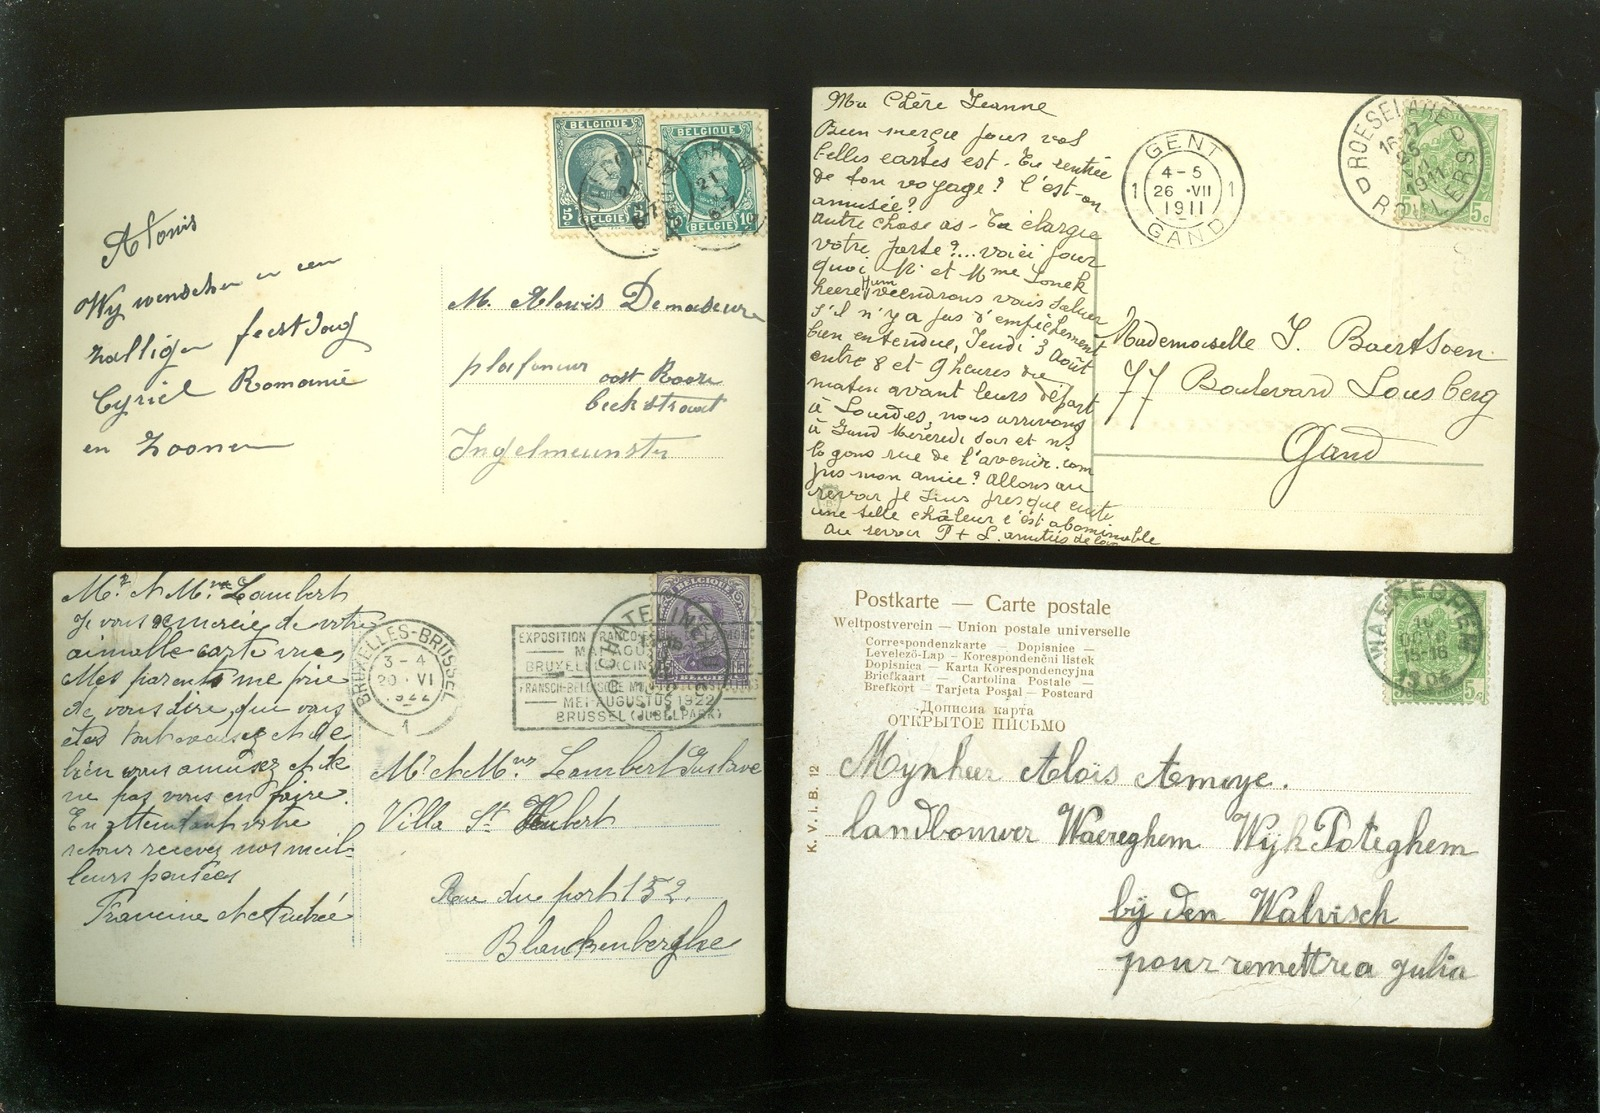 BELGIQUE
5 BELGIË 5
BELGIQUE
BELGIË 10
21
21
Aloïs
Wij wenschen u een
zalligen feestdag
Cyriel Romanie
en Zoonen
M. Aloïs Demadeure
plafoneur oost Roose
beekstraat
Ingelmunster
Ma Chère Jeanne
Bien merçie pour vos
belles cartes est-tu rentrée
de ton voyage? C'est-on
amusée?
autre chose as-tu élargie
votre porte?... voici pour
quoi Mr et Mme Lonck
heere Hum viendrons vous saluer
s'il n'y a pas d'empêchement
bien entendue, Jeudi 3 Août
entre 8 et 9 heures du
matin avant leurs départ
à Lourdes, nous arrivons
à Gand Mercredi soir et ns
logons rue de l'avenir. com
pris mon amie? Allons au
revoir je suis presque cuite
une telle châleur c'est abominable
Au revoir P + L. amitiés de
GENT
4-5
1 26 VII 1
1911
GAND
D ROESELARE D
16-17
25
VII
1911
ROULERS
5c
Mademoiselle J. Baertsoen
77 Boulevard Lousberg
Gand
Mr. et Mme. Lambert
Je vous remercie de votre
aimable carte vue,
Mes parents me prie
de vous dire, que vous
êtes tout excusez et de
bien vous amusez et de
ne pas vous en faire.
En attendant votre
retour recevez nos meil-
leurs pensées
Francine et André
BRUXELLES-BRUSSEL
3-4
20 VI
1922
1
EXPOSITION FRANCO
BRUXELLES (CIN
FRANSCH-BELGISCHE
MEI-AUGUSTUS 1922
BRUSSEL (JUBELPARK)
CHATELINEAU
BELGIQUE
15
BELGIË
Mr. et Mme. Lambert Gustave
Villa St Hubert
Rue du port 152.
Blankenberghe
Postkarte — Carte postale
Weltpostverein — Union postale universelle
Correspondenzkarte — Dopisnice —
Levelező-Lap — Korespondenční listek
Dopisnica — Karta Korespondencyjna
Briefkaart — Cartolina Postale —
Brefkort — Tarjeta Postal — Postcard
Дописна карта
ОТКРЫТОЕ ПИСЬМО
WAEREGHEM
10
OCTO
15-16
1906
5c
K. V. i. B. 12
Mynheer Aloïs Amoye.
landbouwer Waereghem Wijk Poteghem
bij den Walvisch
pour remettre a julia